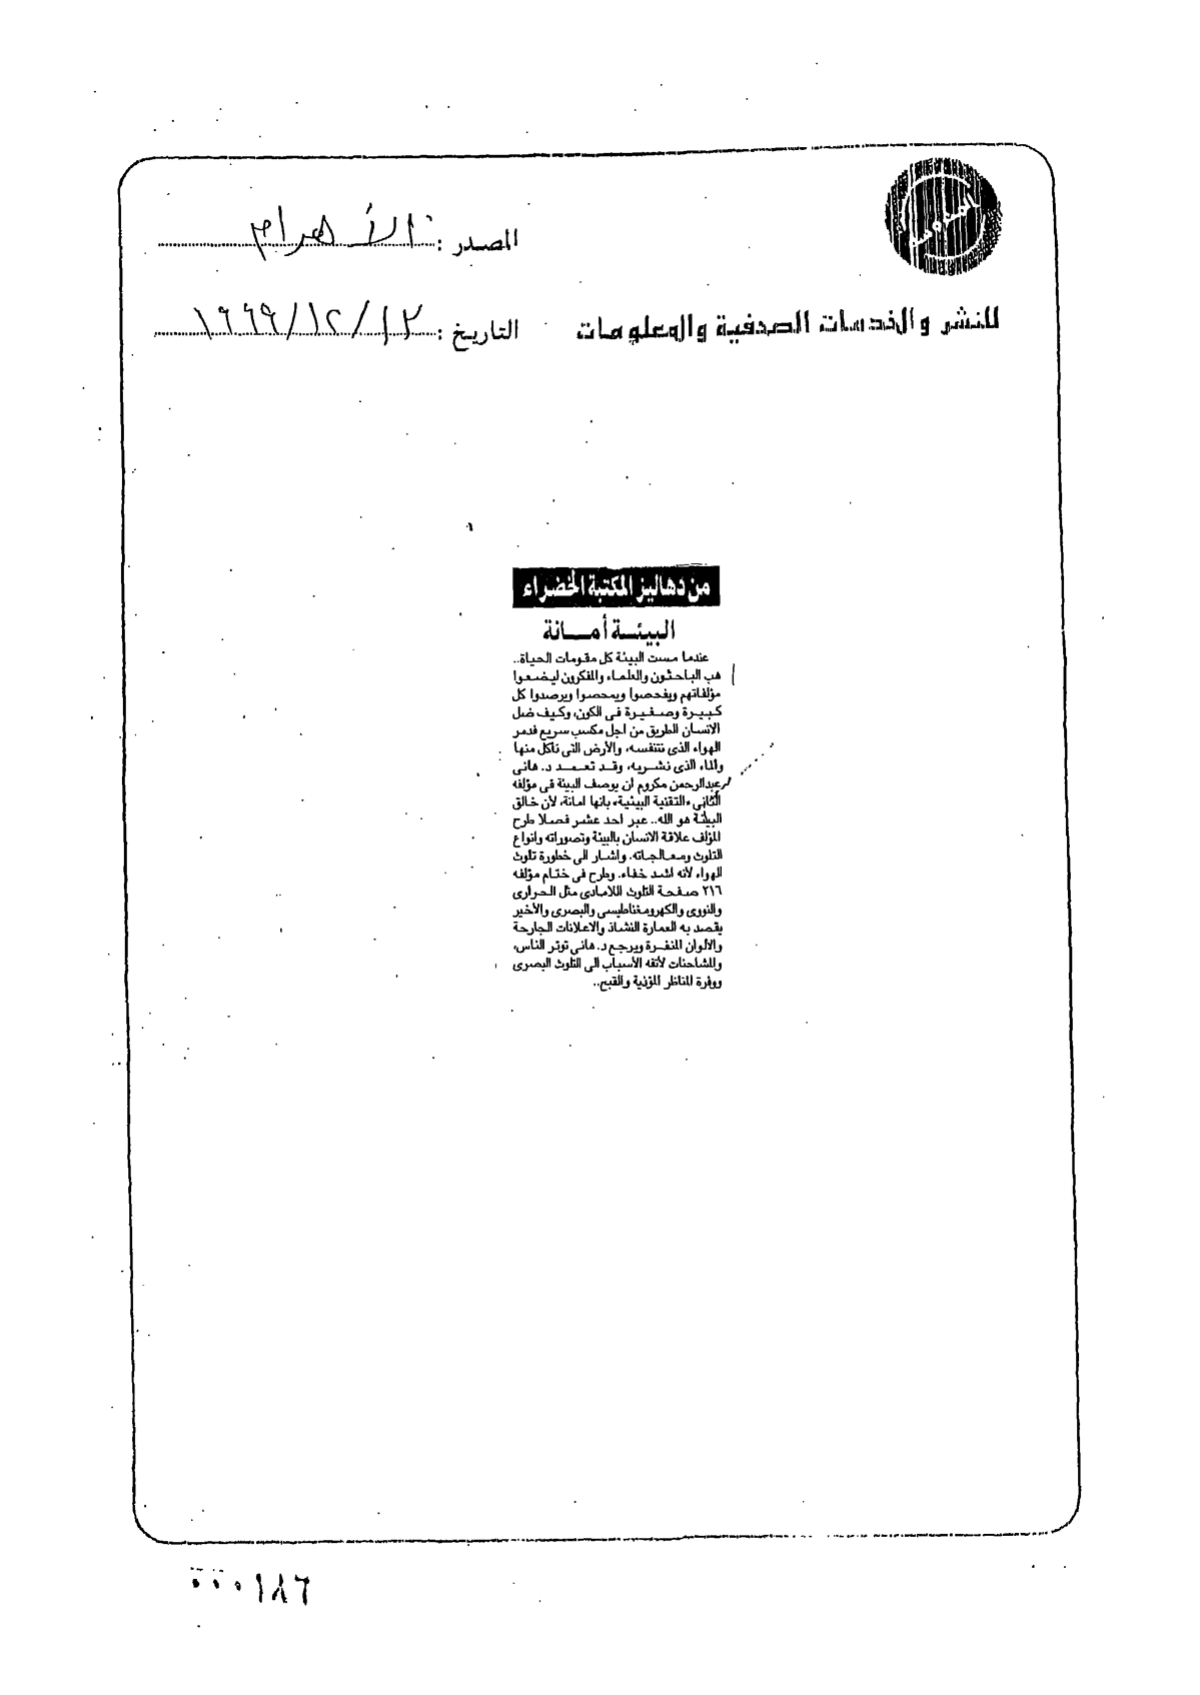 المصدر : الأهرام
للنشر والخدمات الصحفية والمعلومات
التاريخ : ١٩٩٩/١٢/١٢
من دهاليز المكتبة الخضراء
البيئة أمانة
عندما مست البيئة كل مقومات الحياة..
هب الباحثون والعلماء والمفكرون ليضعوا
مؤلفاتهم ويفحصوا ويمحصوا ويرصدوا كل
كبيرة وصغيرة فى الكون، وكيف ضل
الانسان الطريق من اجل مكسب سريع فدمر
الهواء الذى نتنفسه، والأرض التى نأكل منها
والماء الذى نشربه، وقد تعمد د. هانى
عبدالرحمن مكروم ان يوصف البيئة فى مؤلفه
الثانى «التقنية البيئية» بانها امانة، لأن خالق
البيئة هو الله.. عبر احد عشر فصلا طرح
المؤلف علاقة الانسان بالبيئة وتصوراته وانواع
التلوث ومعالجاته. واشار الى خطورة تلوث
الهواء لأنه اشد خفاء. وطرح فى ختام مؤلفه
٢١٦ صفحة التلوث اللامادى مثل الحرارى
والنووى والكهرومغناطيسى والبصرى والأخير
يقصد به العمارة النشاذ والاعلانات الجارحة
والألوان المنفرة ويرجع د. هانى توتر الناس،
والمشاحنات لأتفه الأسباب الى التلوث البصرى
ووفرة المناظر المؤذية والقبح..
٠٠٠١٨٦